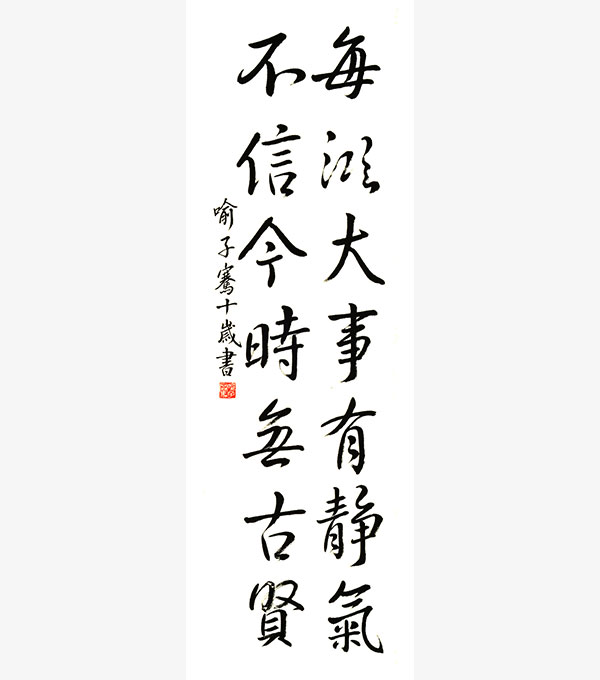 每臨大事有靜氣
不信今時無古賢
喻子騫十歲書